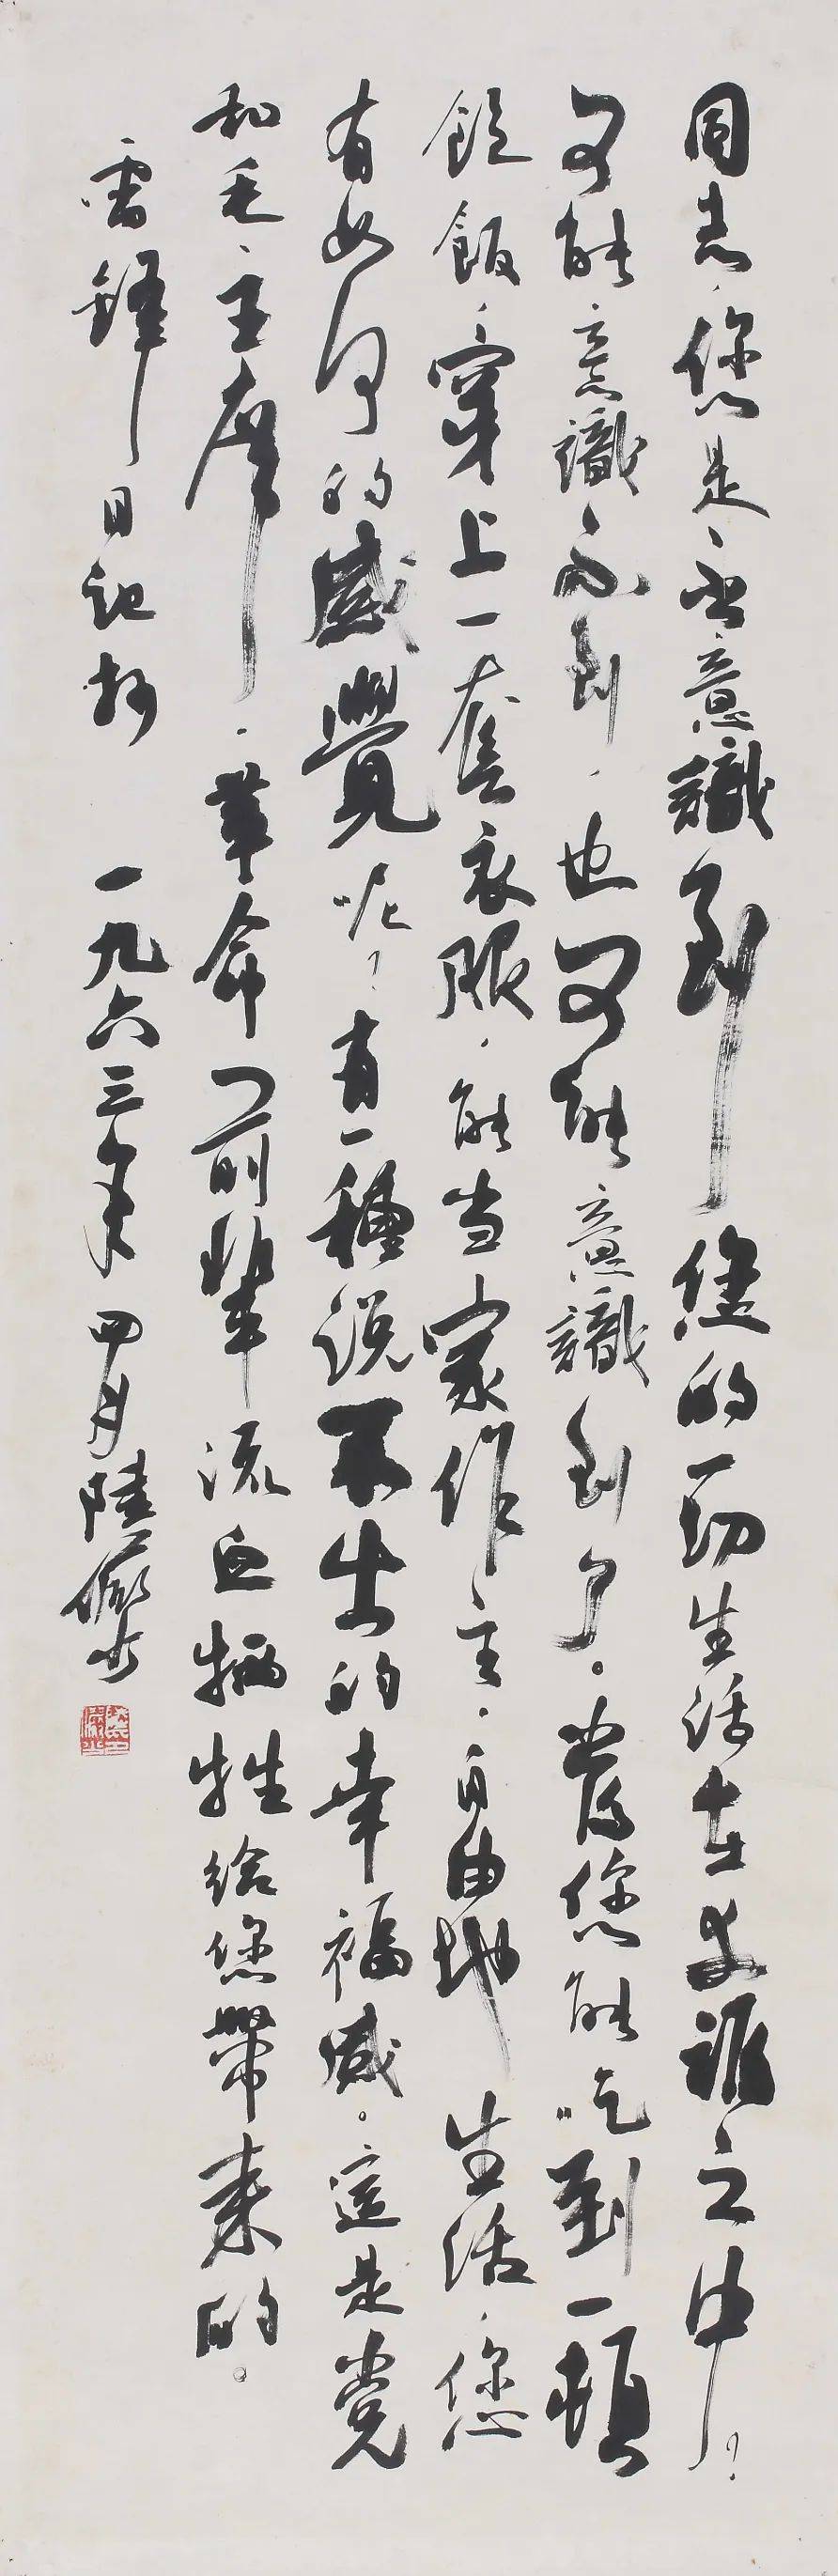 同志，您是否意識到您的一切生活在友誼之中？
可能意識不到，也可能意識到了。當您能吃到一頓
飽飯，穿上一套衣服，能当家作主，自由地生活，您
有如何的感覺呢？有一種説不出的幸福感。這是党
和毛主席，革命前輩流血牺牲给您帶来的。
雷鋒日記抄 一九六三年四月陸儼少